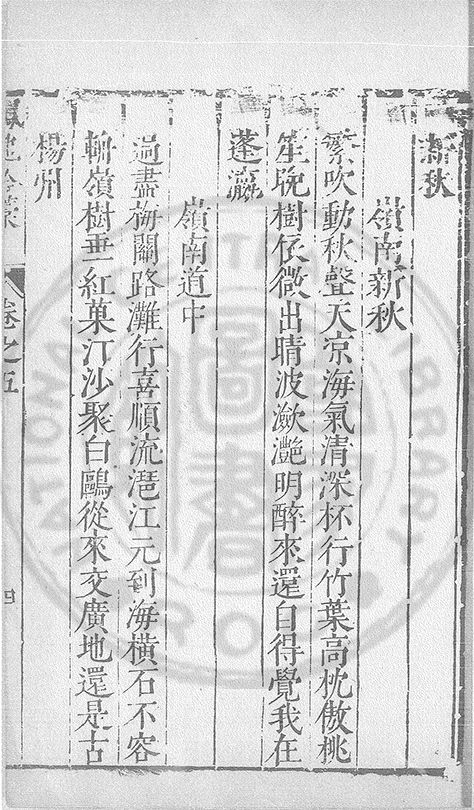 新秋
嶺南新秋
繁吹動秋聲天凉海氣清深杯行竹葉高枕傲桃
笙晚樹依微出晴波瀲灧明醉來還自得覺我在
蓬瀛
嶺南道中
過盡梅關路灘行喜順流江元到海橫石不容
輈嶺樹垂紅菓汀沙聚白鷗從來交廣地還是古
楊州
鳳池吟藁 卷之五 四